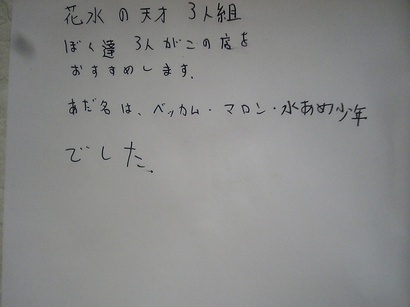 花水の天才 3人組
ぼく達 3人がこの店を
おすすめします.
あだ名は、ベッカム・マロン・水あめ少年
でした.